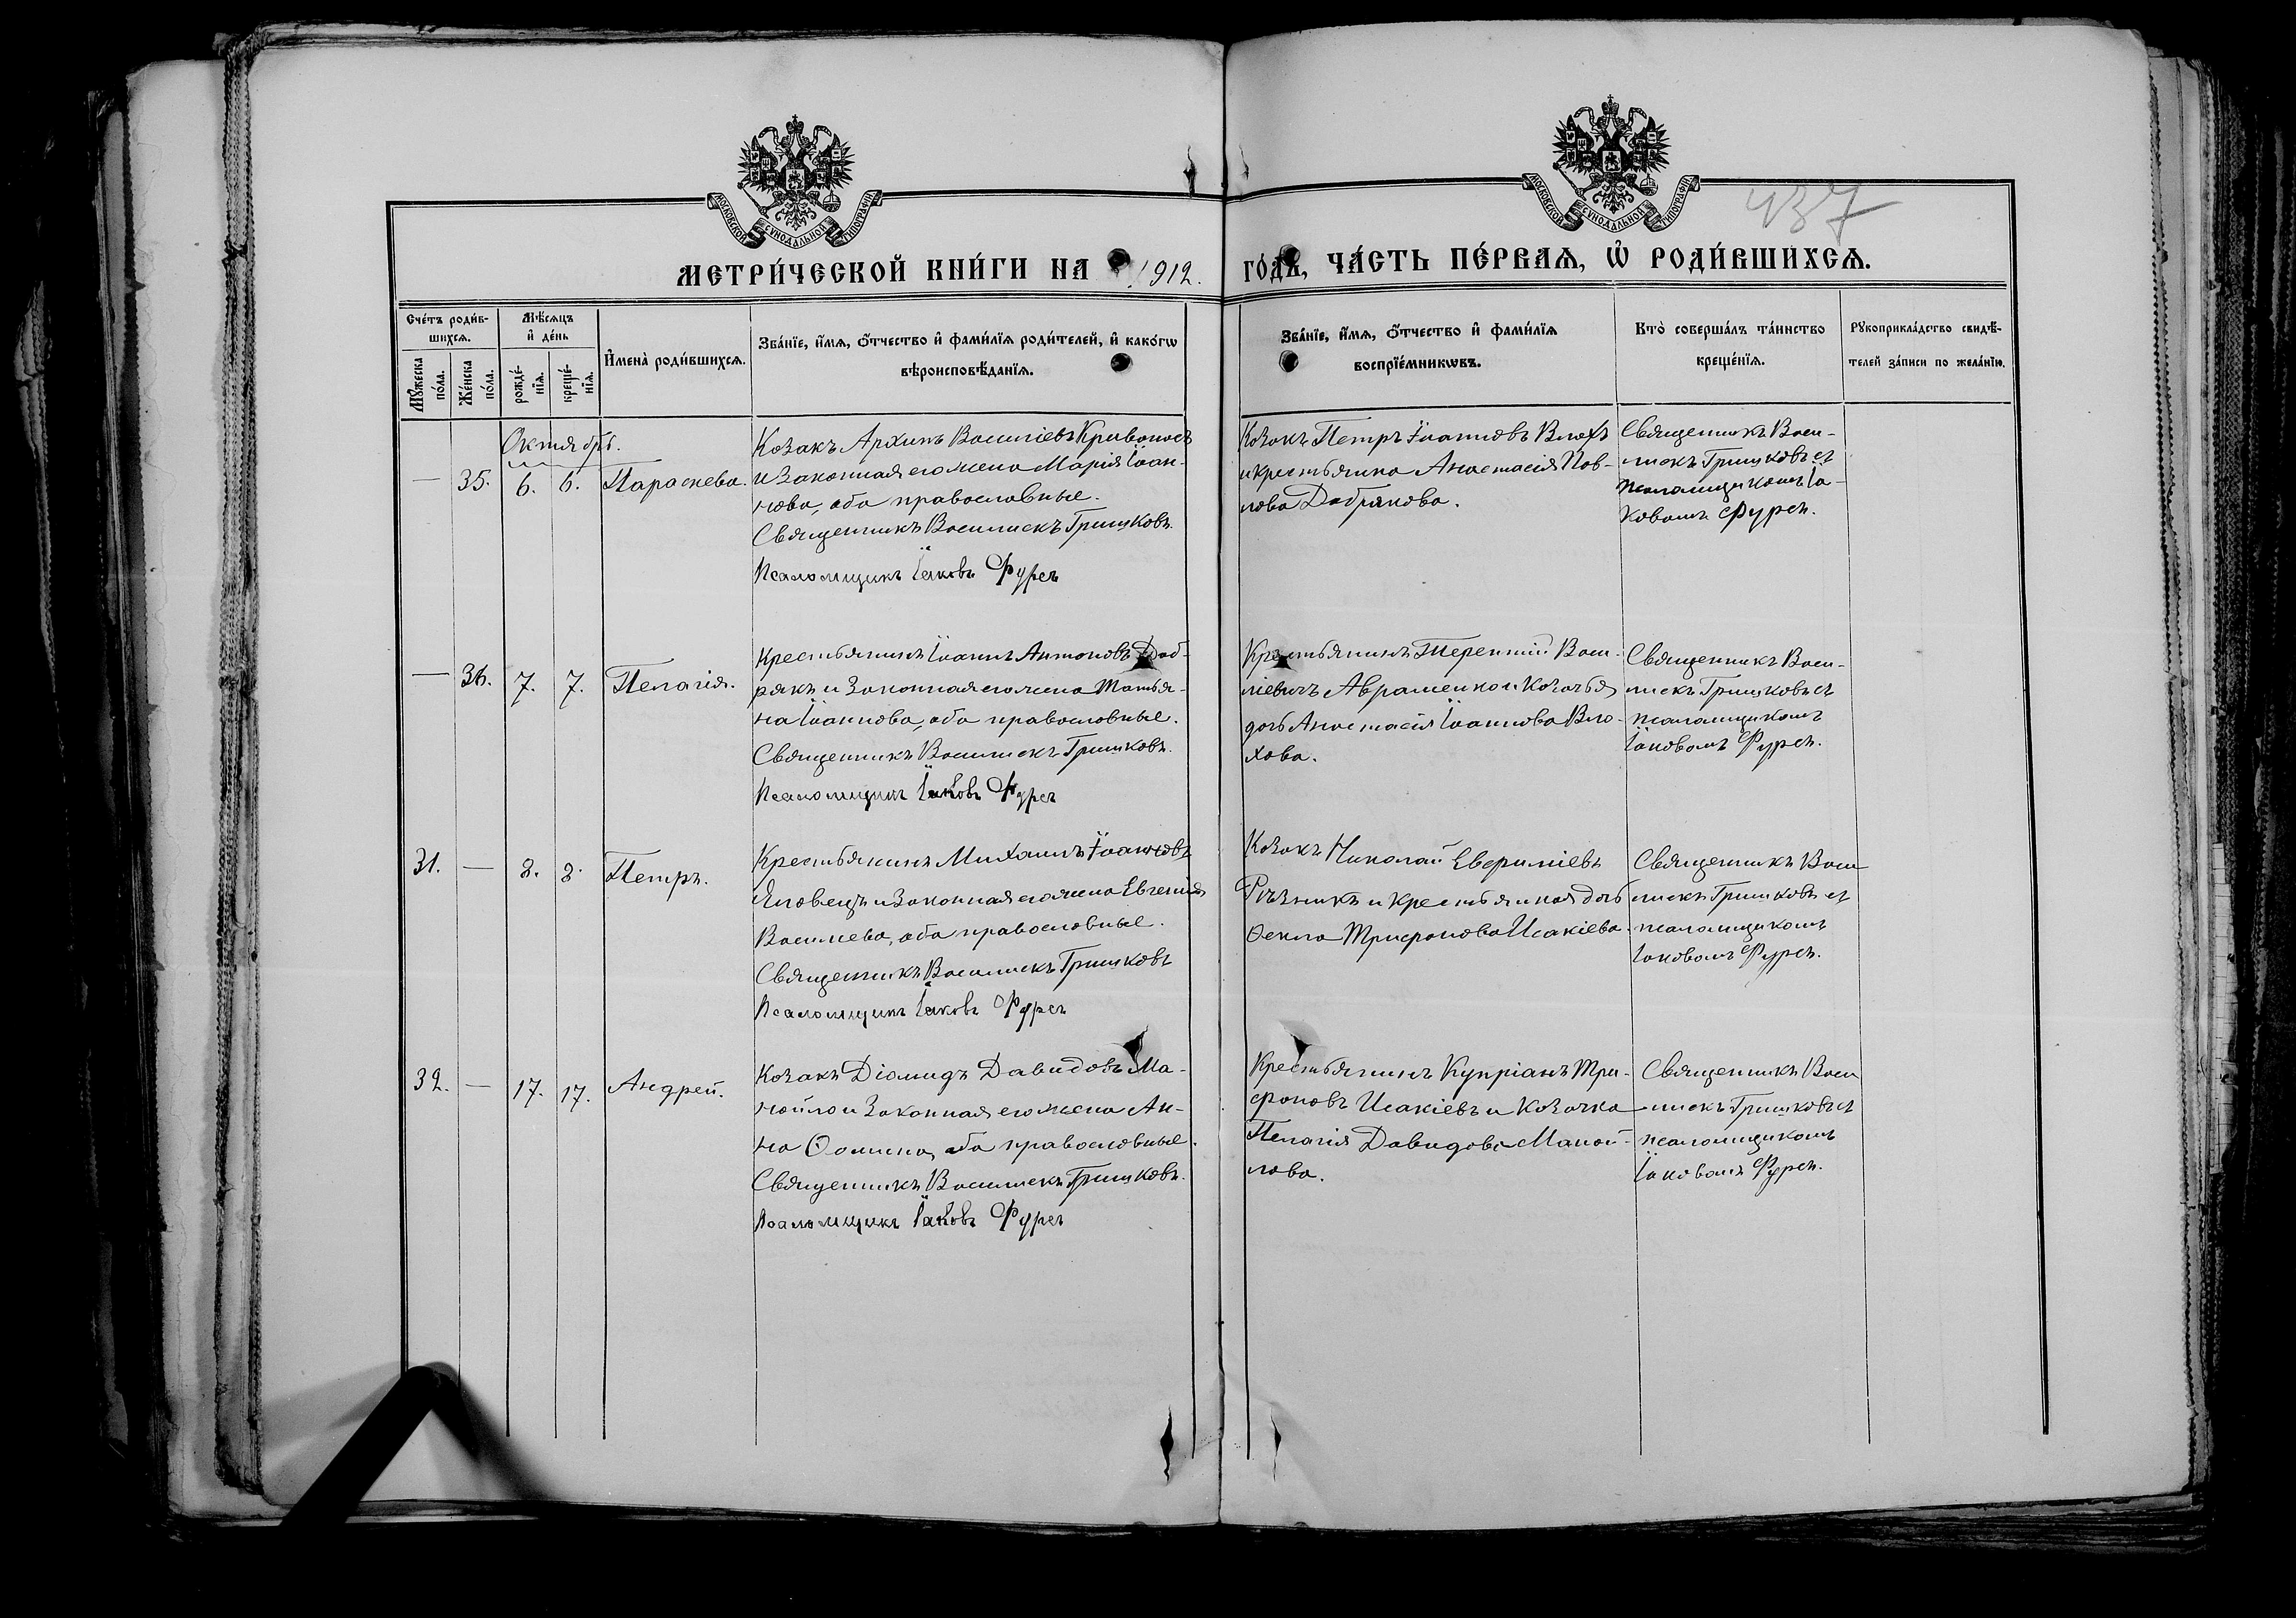 МОСКОВСКОЙ СѴНОДАЛЬНОЙ ТИПОГРАФІИ
МОСКОВСКОЙ СѴНОДАЛЬНОЙ ТИПОГРАФІИ
437
МЕТРИ́ЧЕСКОЙ КНИ́ГИ НА 1912. ГО́ДЪ, ЧА́СТЬ ПЕ́РВАѦ, Ѡ҆ РОДИ́ВШИХСѦ.
Сче́тъ роди́в-
шихсѧ.
Мꙋ́жеска
по́ла.
Же́нска
по́ла.
Мѣ́сѧцъ
и҆ де́нь
рожде́-
нїѧ.
креще́-
нїѧ.
И҆мена̀ роди́вшихсѧ.
Зва́нїе, и҆́мѧ, ѻ҆́тчество и҆ фами́лїѧ роди́телей, и҆ како́гѡ
вѣроисповѣ́данїѧ.
Зва́нїе, и҆́мѧ, ѻ҆́тчество и҆ фами́лїѧ
воспрїе́мникѡвъ.
Кто̀ соверша́лъ та́инство
креще́нїѧ.
Рꙋкоприкла́дство свидѣ́-
телей за́писи по жела́нїю.
Октябрь.
— 35. 6. 6. Параскева.
Козакъ Архипъ Василіевъ Кривоносъ
и Законная его жена Марія Іоан-
нова, оба православные.
Священникъ Василискъ Гришковъ.
Псаломщикъ Іаковъ Фурсъ
Козакъ Петръ Іоанновъ Влохъ
и крестьянка Анастасія Пав-
лова Добрякова.
Священникъ Васи-
лискъ Гришковъ съ
псаломщикомъ Іа-
ковомъ Фурсъ.
— 36. 7. 7. Пелагія.
Крестьянинъ Іоаннъ Антоновъ Доб-
рякъ и Законная его жена Татья-
на Іоаннова, оба православные.
Священникъ Василискъ Гришковъ.
Псаломщикъ Іаковъ Фурсъ
Крестьянинъ Терентій Васи-
ліевичъ Авраменко и Козачья
дочь Анастасія Іоаннова Вло-
хова.
Священникъ Васи-
лискъ Гришковъ съ
псаломщикомъ
Іаковомъ Фурсъ.
31. — 8. 8. Петръ.
Крестьянинъ Михаилъ Іоанновъ
Яловецъ и Законная его жена Евгенія
Василева, оба православные.
Священникъ Василискъ Гришковъ
Псаломщикъ Іаковъ Фурсъ
Козакъ Николай Евфиміевъ
Рѣзникъ и крестьянская дочь
Ѳекла Трифонова Исакіева.
Священникъ Васи
лискъ Гришковъ съ
псаломщикомъ
Іаковомъ Фурсъ.
32. — 17. 17. Андрей.
Козакъ Діомидъ Давидовъ Ма-
нойло и Законная его жена Ан-
на Ѳомина, оба православные.
Священникъ Василискъ Гришковъ.
Псаломщикъ Іаковъ Фурсъ
Крестьянинъ Купріанъ Три-
фоновъ Исакіевъ и Козачка
Пелагія Давидова Маной-
лова.
Священникъ Васи
лискъ Гришковъ съ
псаломщикомъ
Іаковомъ Фурсъ.